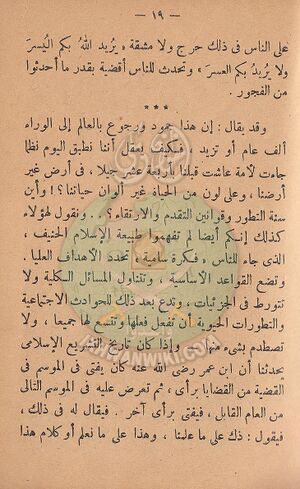 — ١٩ —
على الناس فى ذلك حرج ولا مشقة « يُريد اللهُ بكم اليُسرَ
ولا يُريدُ بكم العسرَ » وتحدث للناس أقضية بقدر ما أحدثوا
من الفجور .
* * *
وقد يقال : إن هذا جمود ورجوع بالعالم إلى الوراء
ألف عام أو تزيد ، فكيف يعقل أننا نطبق اليوم نظما
جاءت لأمة عاشت قبلنا بأربعة عشر جيلا ، فى أرض غير
أرضنا ، وعلى لون من الحياة غير ألوان حياتنا ؟! وأين
سنة التطور وقوانين التقدم والارتقاء ؟ . . ونقول لهؤلاء
كذلك إنكم أيضا لم تفهموا طبيعة الإسلام الحنيف ،
الذى جاء للناس « فكرة سامية » تحدد الأهداف العليا .
وتضع القواعد الأساسية ، وتتناول المسائل الكلية ولا
تتورط فى الجزئيات ، وتدع بعد ذلك للحوادث الاجتماعية
والتطورات الحيوية أن تفعل فعلها وتتسع لها جميعا ، ولا
تصطدم بشىء منها . وإذا كان تاريخ التشريع الإسلامى
يحدثنا أن ابن عمر رضى الله عنه كان يفتى فى الموسم فى
القضية من القضايا برأى ، ثم تعرض عليه فى الموسم التالى
من العام القابل ، فيفتى برأى آخر . فيقال له فى ذلك ،
فيقول : ذلك على ما علمنا ، وهذا على ما نعلم أو كلام هذا
IKHWANWIKI.COM